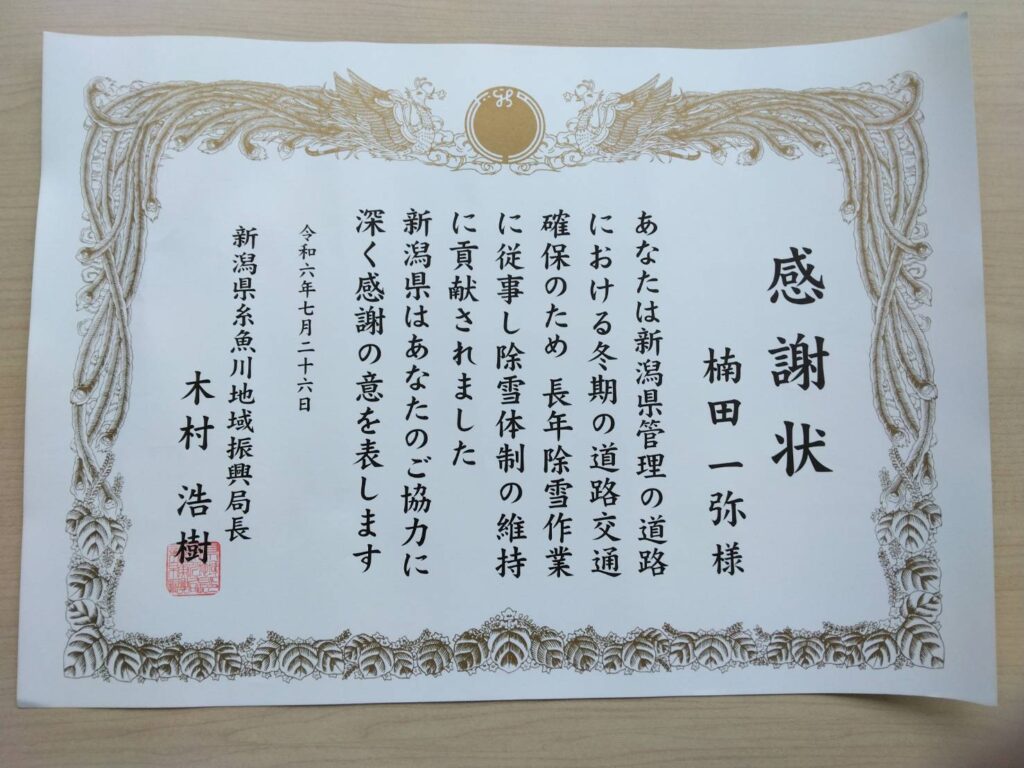 感謝状
楠田一弥様
あなたは新潟県管理の道路
における冬期の道路交通
確保のため 長年除雪作業
に従事し除雪体制の維持
に貢献されました
新潟県はあなたのご協力に
深く感謝の意を表します
令和六年七月二十六日
新潟県糸魚川地域振興局長
木村 浩樹